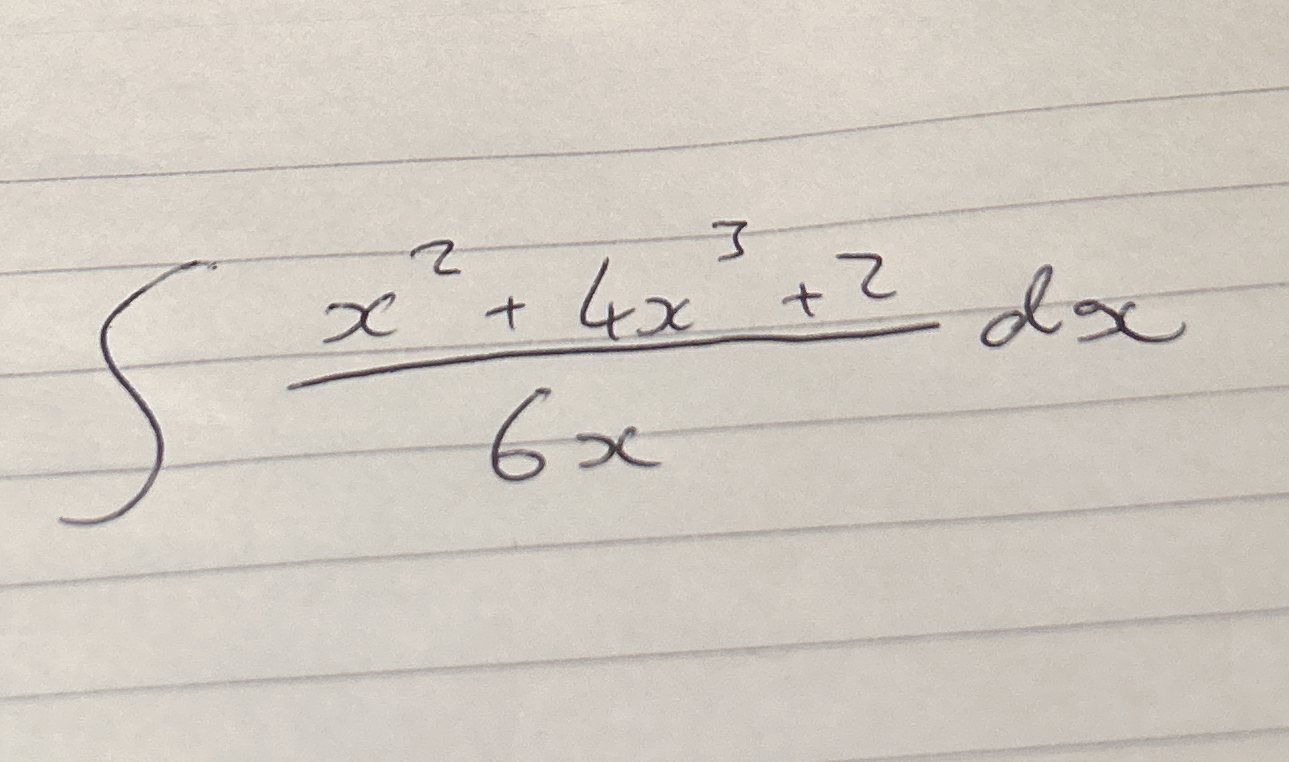 ∫ (x² + 4x³ + 2)/(6x) dx